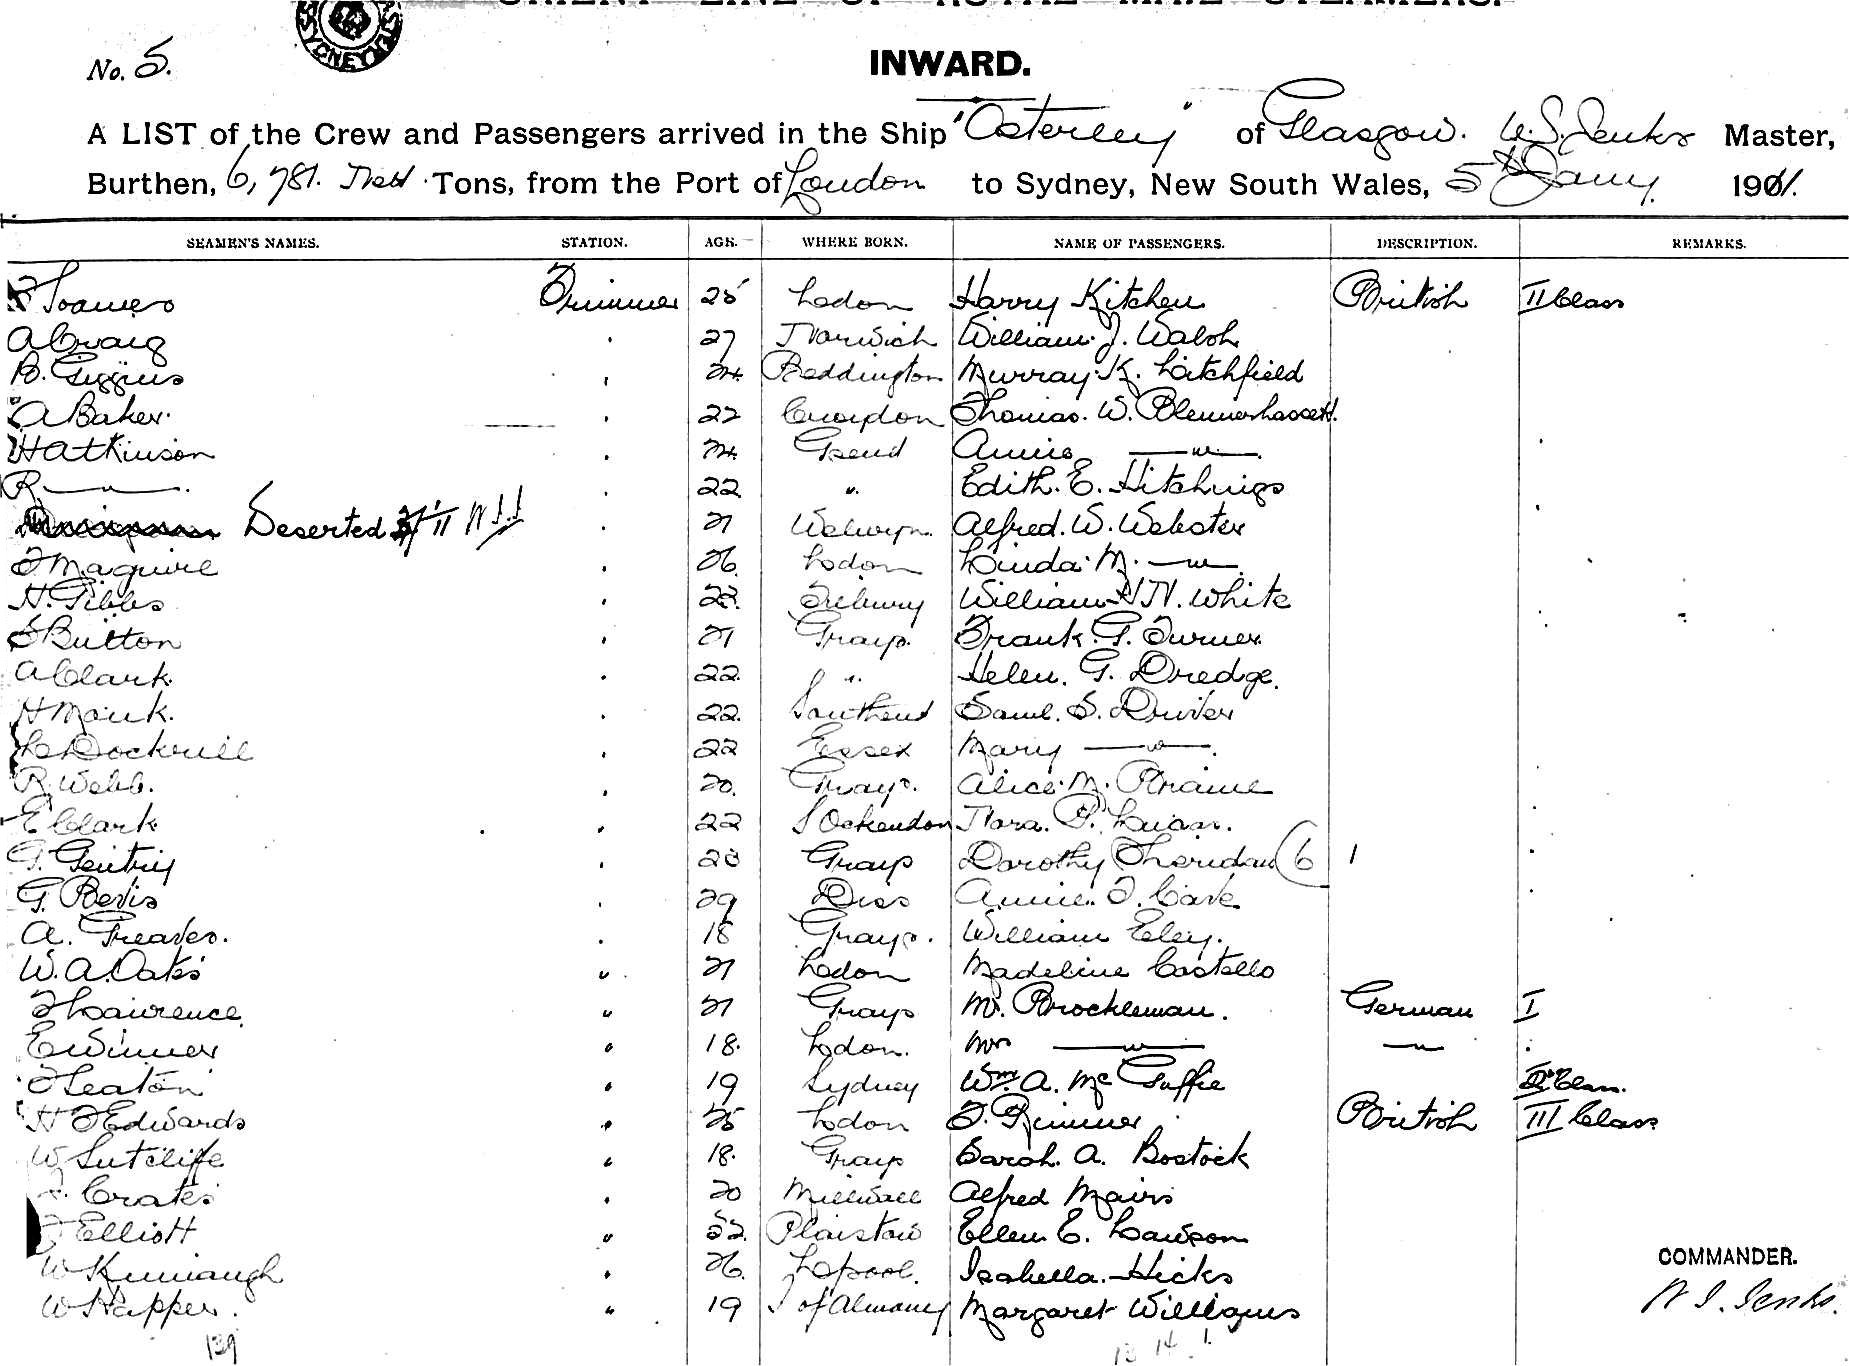 ORIENT LINE OF ROYAL MAIL STEAMERS.
SYDNEY
No. 5.
INWARD.
A LIST of the Crew and Passengers arrived in the Ship "Osterley" of Glasgow. W.S. Jenks Master,
Burthen, 6,781. Nett Tons, from the Port of London to Sydney, New South Wales, 5th Jany. 1911.
SEAMEN'S NAMES. STATION. AGE. WHERE BORN. NAME OF PASSENGERS. DESCRIPTION. REMARKS.
Trimmer 25 Lodon Harry Kitchen British II Class
A Craig " 27 Norwich William J. Walsh
B. Giggins " 24 Beddington Murray K. Litchfield
A Baker " 22 Croydon Thomas. W. Blennerhassett.
H Atkinson " 24 Gsend Annie —"—
R. —"— " 22 " Edith. E. Hitchings
Deserted " 21 Welwyn. Alfred. W. Webster
J Maguire " 26 Lodon Linda. M. —"—
H. Gibbs " 22 Tilbury William H. N. White
S Button " 21 Grays. Frank. G. Turner
A Clark " 22 " Helen. G. Dredge.
H Monk. " 22. Southend Saml. S. Driver
L Dockrill " 22 Essex Mary —"—.
R. Webb. " 20. Grays. Alice. M. Raine
E Clark " 22 S Ockendon Nora. P.
G. Gentry " 28 Grays Dorothy Sheridan 6 1
G. Bevis " 29 Diss Annie. J. Cave
A. Greaves. " 18 Grays. William Eley.
W. A. Oates " 21 Lodon Madeline Costello
F Lawrence " 21 Grays Mr. Brockleman. German I
E Winner " 18. Lodon. Mrs —"— —"— "
F Seaton " 19 Sydney Wm. A. Mc Guffie II Class.
H J Edwards " 25 Lodon J. Rimmer British III Class
W Sutcliffe " 18. Grays Sarah. A. Bostock
Crates " 20 Millwall Alfred Mairs
J Elliott " 22. Plaistow Ellen E. Lawson
W Kinnaugh " 26. Lpool. Isabella. Hicks
W Happer. " 19 Margaret Williams
COMMANDER.
W. S. Jenks.
139
13 14 1